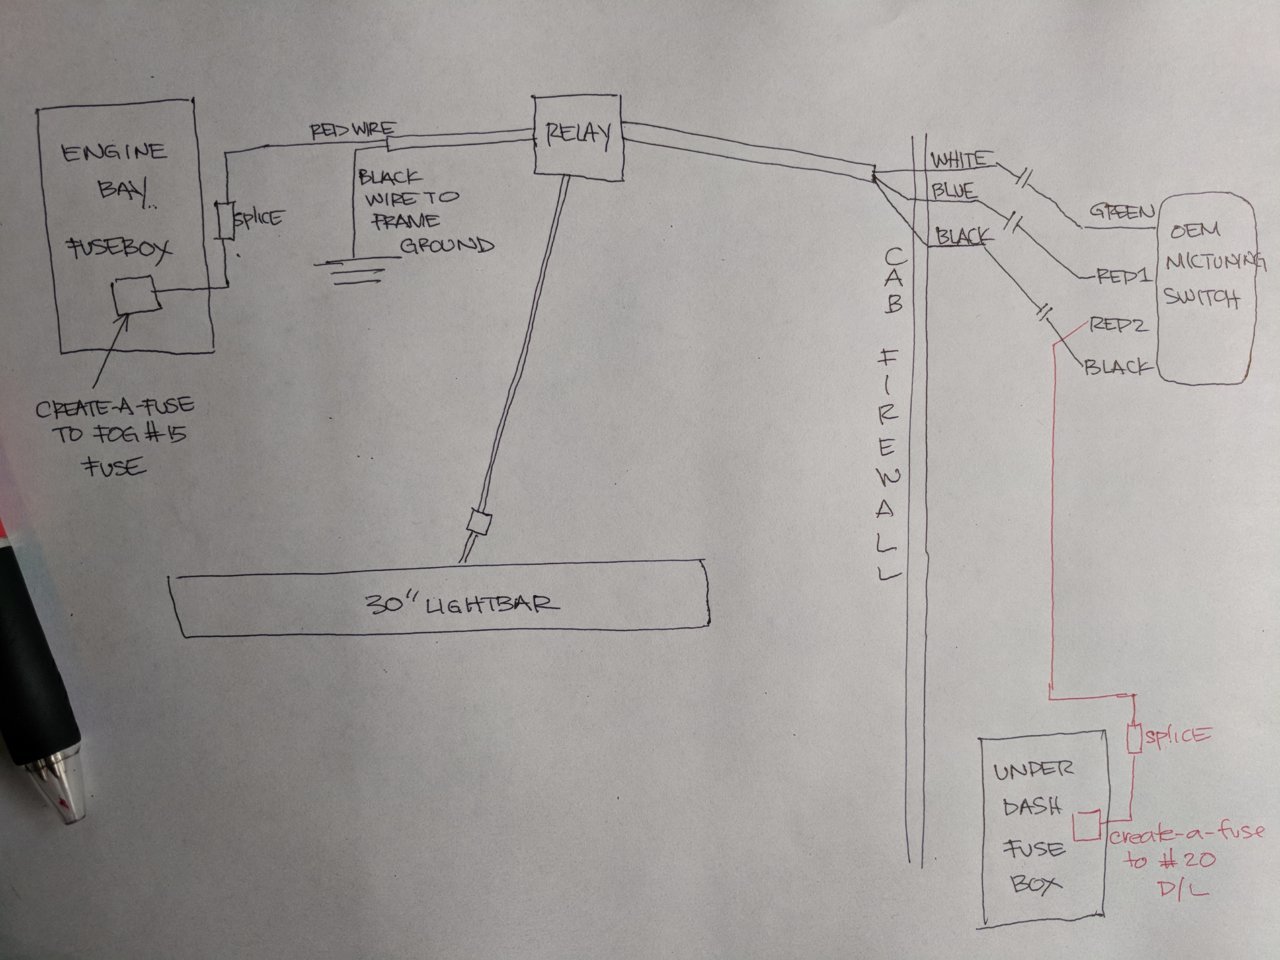 ENGINE
BAY..
FUSEBOX
SPLICE
CREATE-A-FUSE
TO FOG #15
FUSE
RED WIRE
BLACK
WIRE TO
FRAME
GROUND
RELAY
30" LIGHTBAR
CAB FIREWALL
WHITE
BLUE
BLACK
GREEN
RED1
RED2
BLACK
OEM
MICTUNING
SWITCH
SPLICE
UNDER
DASH
FUSE
BOX
create-a-fuse
to #20
D/L